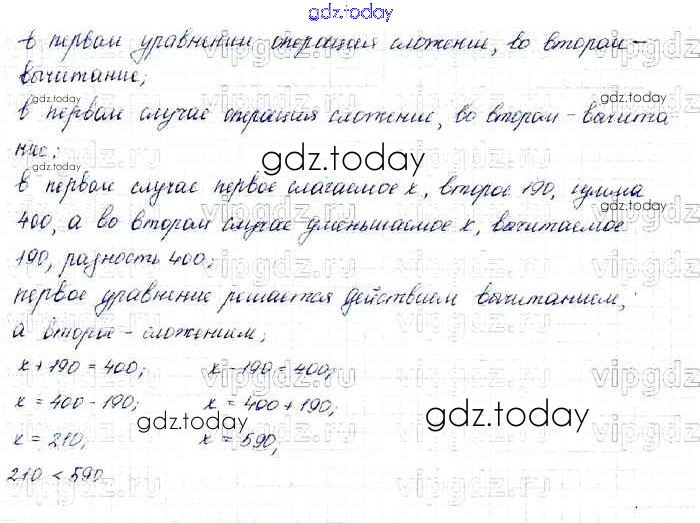 gdz.today
в первом уравнении операция сложение, во втором -
вычитание;
gdz.today gdz.today
в первом случае операция сложение, во втором - вычита
ние;
gdz.today
в первом случае первое слагаемое x, второе 190, сумма
gdz.today
400, а во втором случае уменьшаемое x, вычитаемое
190, разность 400;
vipgdz.ru
первое уравнение решается действием вычитанием,
а второе - сложением;
x + 190 = 400; x - 190 = 400;
x = 400 - 190; x = 400 + 190;
gdz.today gdz.today
x = 210; x = 590;
210 < 590